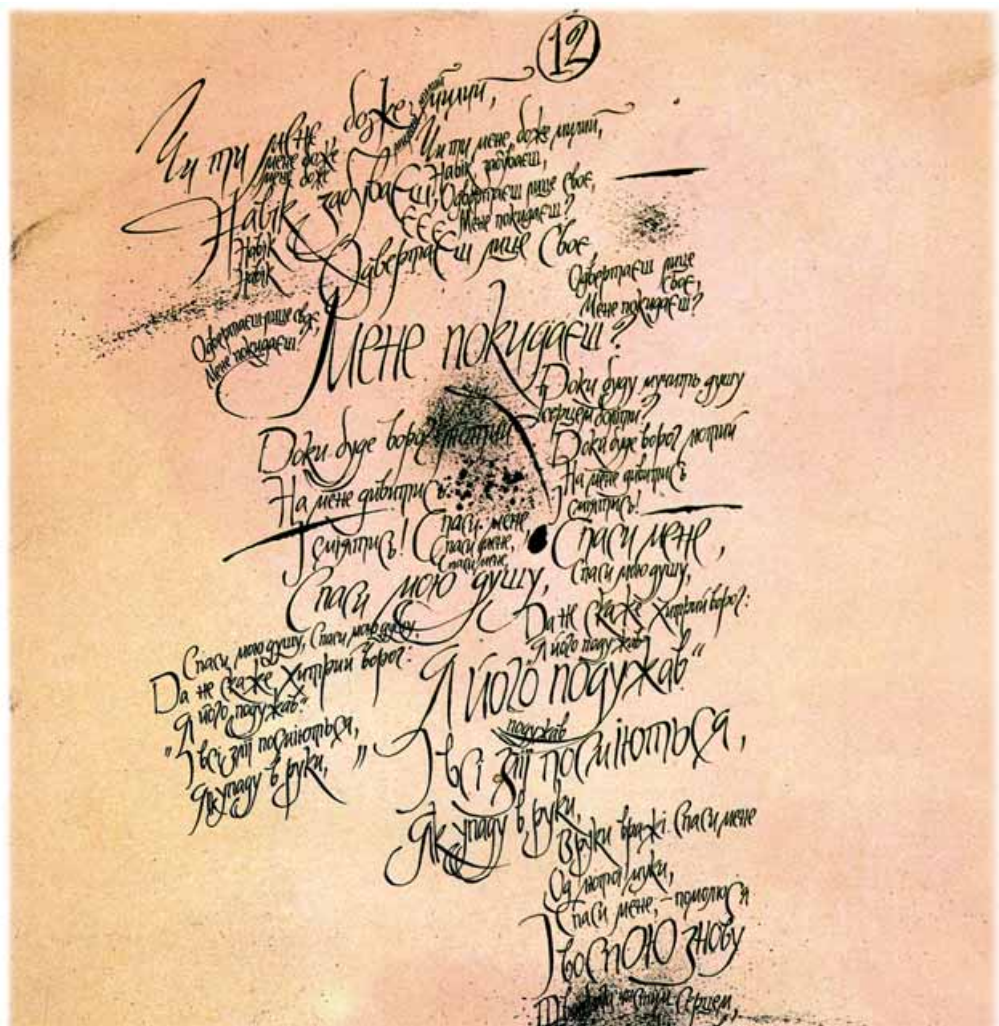 12
Чи ти мене, боже милий,
милий
милий
мене боже
мене боже
Навік забуваєш,
Навік
Навік
Чи ти мене, боже милий,
Навік забуваєш,
Одвертаєш лице своє,
Мене покидаєш?
Є Є Є
Одвертаєш лице Своє
Одвертаєш лице
своє,
Мене покидаєш?
Одвертаєш лице своє,
Мене покидаєш?
Мене покидаєш?
Доки буду мучить душу
І серцем боліти?
Доки буде ворог лютий
На мене дивитись
І сміятись!
Доки буде ворог лютий
На мене дивитись
І сміятись! Спаси мене,
Спаси мене,
Спаси мене,
Спаси мене,
Спаси мою душу,
Спаси мою душу,
Да не скаже хитрий ворог:
Я його подужав
Спаси мою душу, Спаси мою душу,
Да не скаже хитрий ворог:
"Я його подужав."
"І всі злії посміються,
Як упаду в руки, "
Я його подужав"
подужав
І всі злії посміються,
Як упаду в руки,
В руки вражі. Спаси мене
Од лютої муки,
Спаси мене, – помолюся
І воспОЮ знову
чистим серцем,